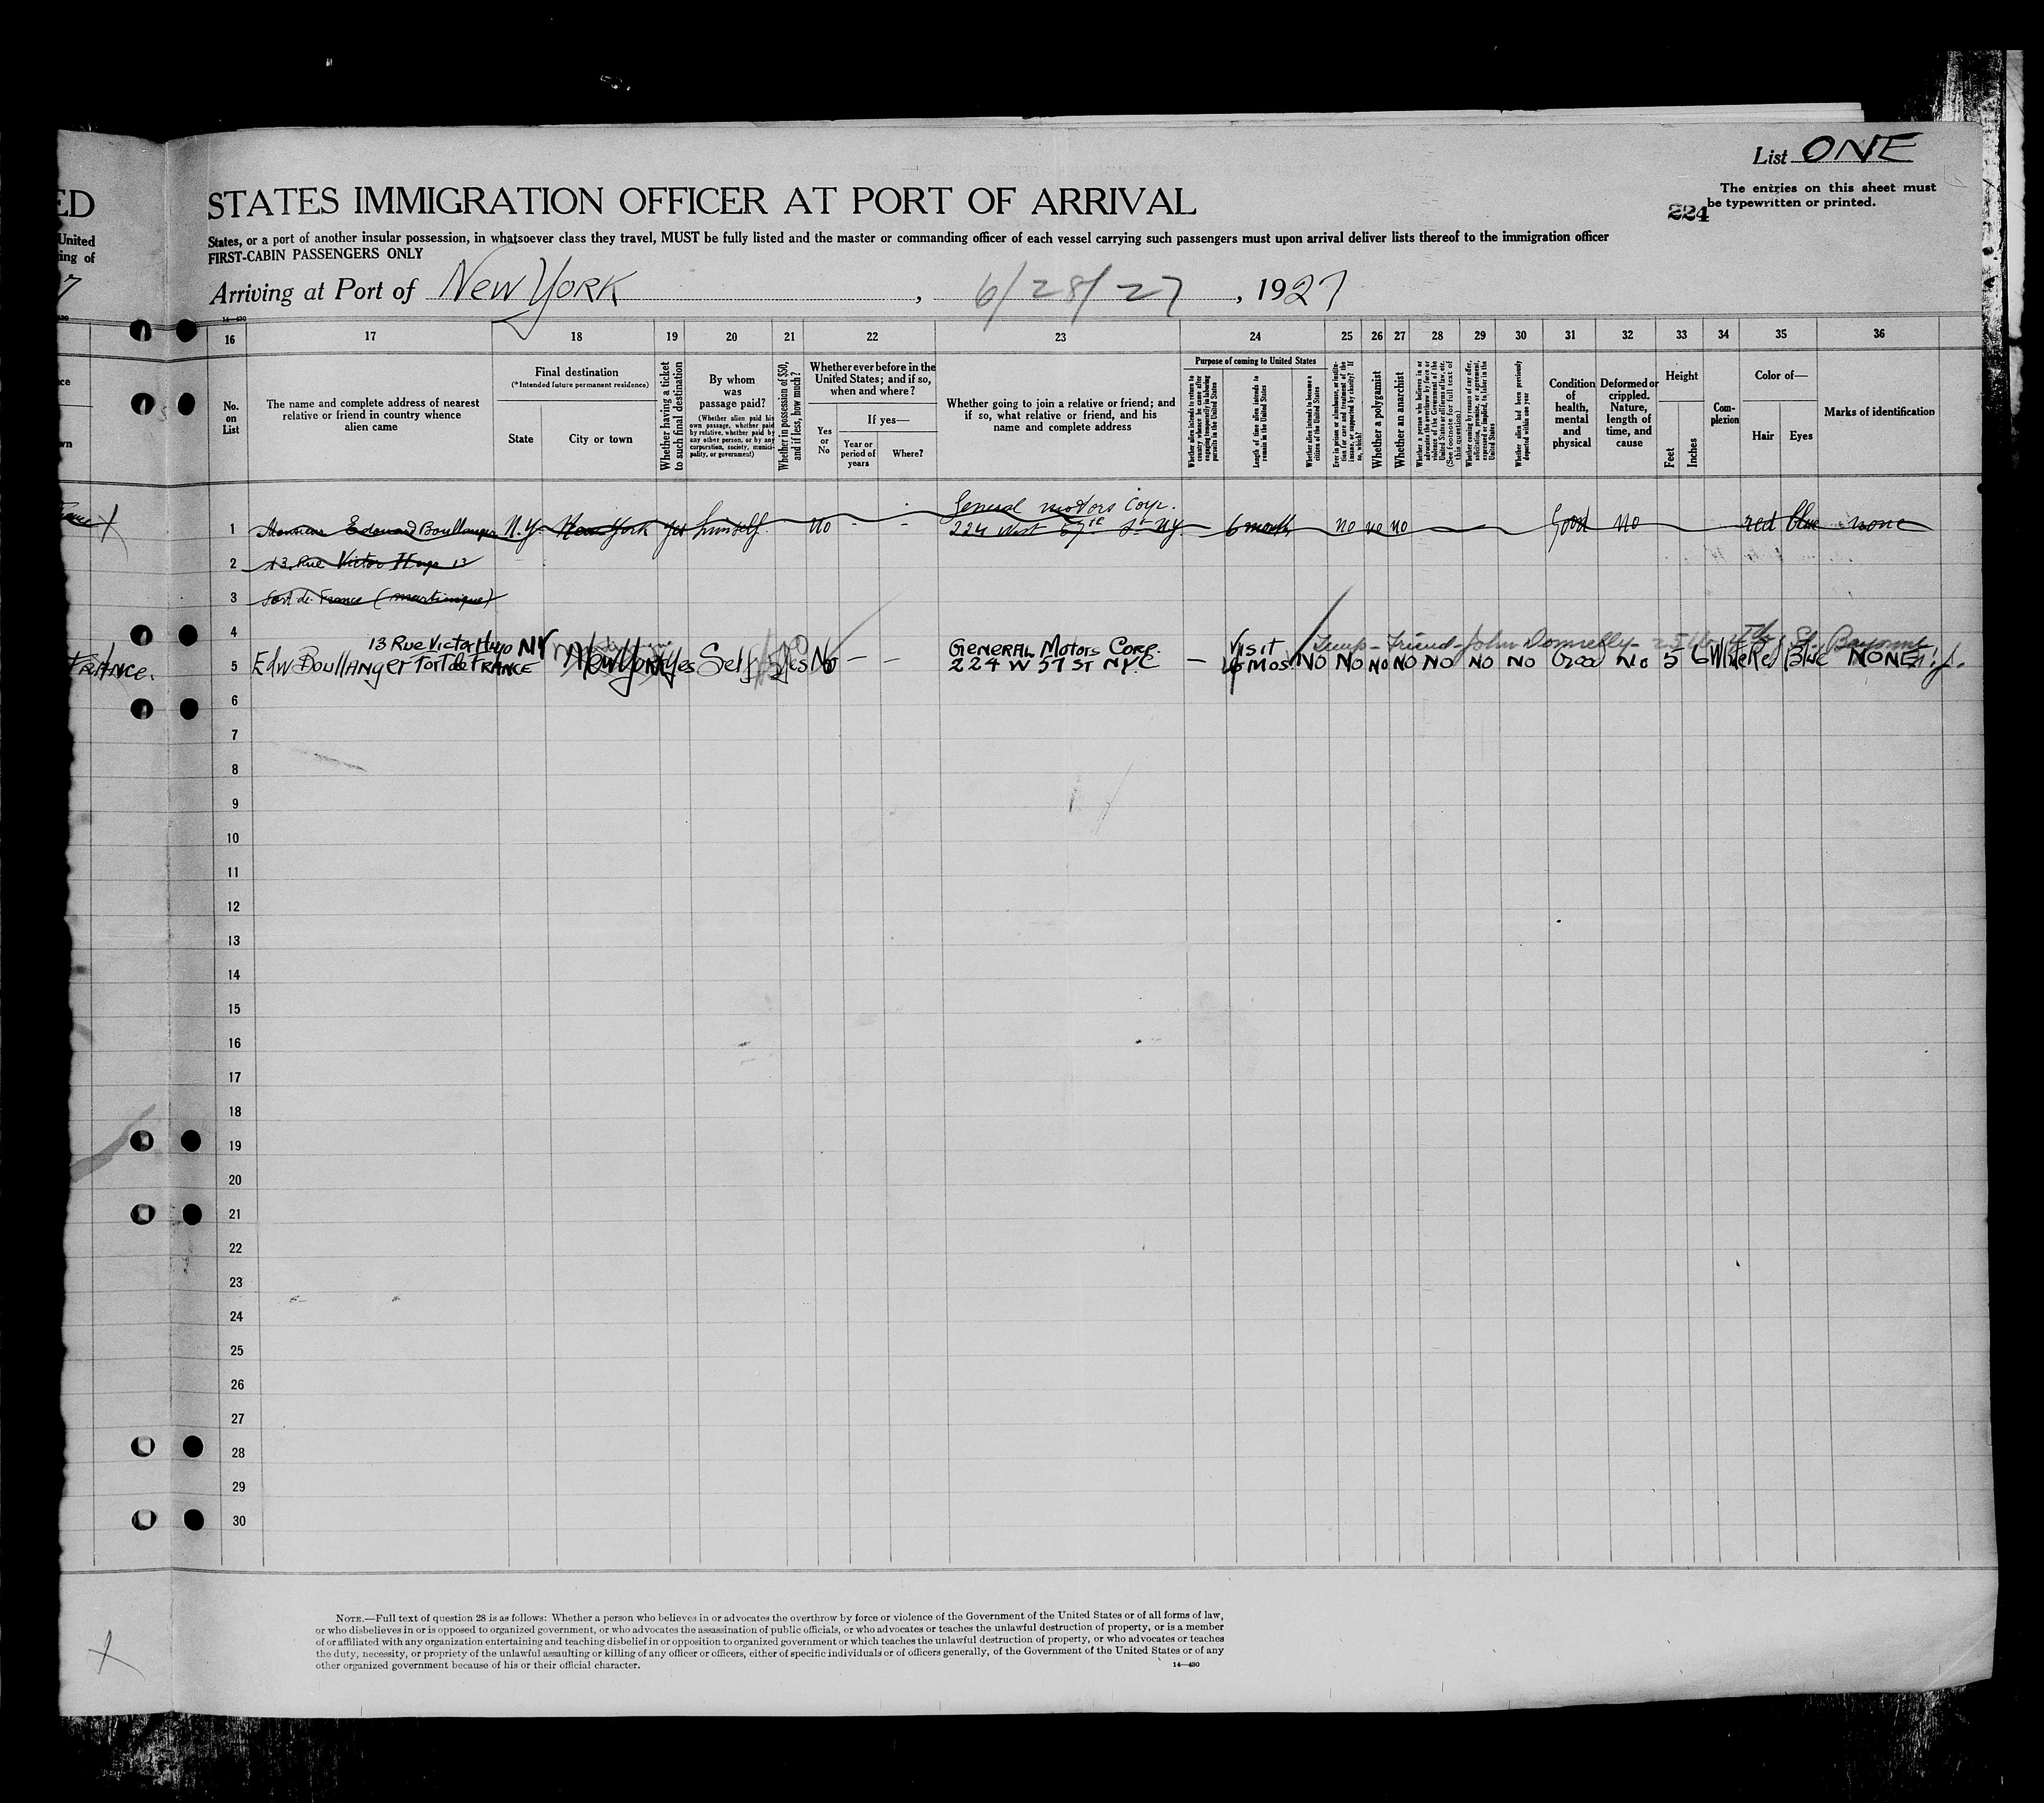 List ONE
The entries on this sheet must
be typewritten or printed.
224
ED
STATES IMMIGRATION OFFICER AT PORT OF ARRIVAL
United
ing of
States, or a port of another insular possession, in whatsoever class they travel, MUST be fully listed and the master or commanding officer of each vessel carrying such passengers must upon arrival deliver lists thereof to the immigration officer
FIRST-CABIN PASSENGERS ONLY
Arriving at Port of New York, 6/28/27, 1927
14—430
16 17 18 19 20 21 22 23 24 25 26 27 28 29 30 31 32 33 34 35 36
No. on List
The name and complete address of nearest
relative or friend in country whence
alien came
Final destination
(*Intended future permanent residence)
State
City or town
Whether having a ticket
to such final destination
By whom
was
passage paid?
(Whether alien paid his
own passage, whether paid
by relative, whether paid by
any other person, or by any
corporation, society, munici-
pality, or government)
Whether in possession of $50,
and if less, how much?
Whether ever before in the
United States; and if so,
when and where?
Yes
or
No
If yes—
Year or
period of
years
Where?
Whether going to join a relative or friend; and
if so, what relative or friend, and his
name and complete address
Purpose of coming to United States
Whether alien intends to return to
country whence he came after
engaging temporarily in laboring
pursuits in the United States
Length of time alien intends to
remain in the United States
Whether alien intends to become a
citizen of the United States
Ever in prison or almshouse, or institu-
tion for care and treatment of the
insane, or supported by charity? If
so, which?
Whether a polygamist
Whether an anarchist
Whether a person who believes in or
advocates the overthrow by force or
violence of the Government of the
United States or all forms of law, etc.
(See footnote for full text of
this question)
Whether coming by reason of any offer,
solicitation, promise, or agreement,
expressed or implied, to labor in the
United States
Whether alien had been previously
deported within one year
Condition
of
health,
mental
and
physical
Deformed or
crippled.
Nature,
length of
time, and
cause
Height
Feet
Inches
Com-
plexion
Color of—
Hair
Eyes
Marks of identification
General motors Corp.
1 Monsieur Edouard Boullanger N.Y. New York yes himself No - - 224 West 57th St N.Y. - 6 month no no no Good No red blue none
2 13, Rue Victor Hugo 13
3 Fort de France (martinique)
4 13 Rue Victor Hugo NY GENERAL MOTORS CORP. Visit Temp - Friend - John Donnelly - St. Bayonne
FRANCE. 5 Edw Boullanger Fort de FRANCE New York Yes Self Yes No — — 224 W 57 ST NYC — 6 mos. NO NO NO NO NO NO NO Good No 5 6 Red Blue NONE N.J.
6
7
8
9
10
11
12
13
14
15
16
17
18
19
20
21
22
23
24
25
26
27
28
29
30
NOTE.—Full text of question 28 is as follows: Whether a person who believes in or advocates the overthrow by force or violence of the Government of the United States or of all forms of law,
or who disbelieves in or is opposed to organized government, or who advocates the assassination of public officials, or who advocates or teaches the unlawful destruction of property, or is a member
of or affiliated with any organization entertaining and teaching disbelief in or opposition to organized government or which teaches the unlawful destruction of property, or who advocates or teaches
the duty, necessity, or propriety of the unlawful assaulting or killing of any officer or officers, either of specific individuals or of officers generally, of the Government of the United States or of any
other organized government because of his or their official character.
14—430